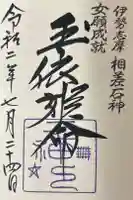 伊勢志摩 相差石神
女願成就
玉依姫命
令和二年七月二十四日